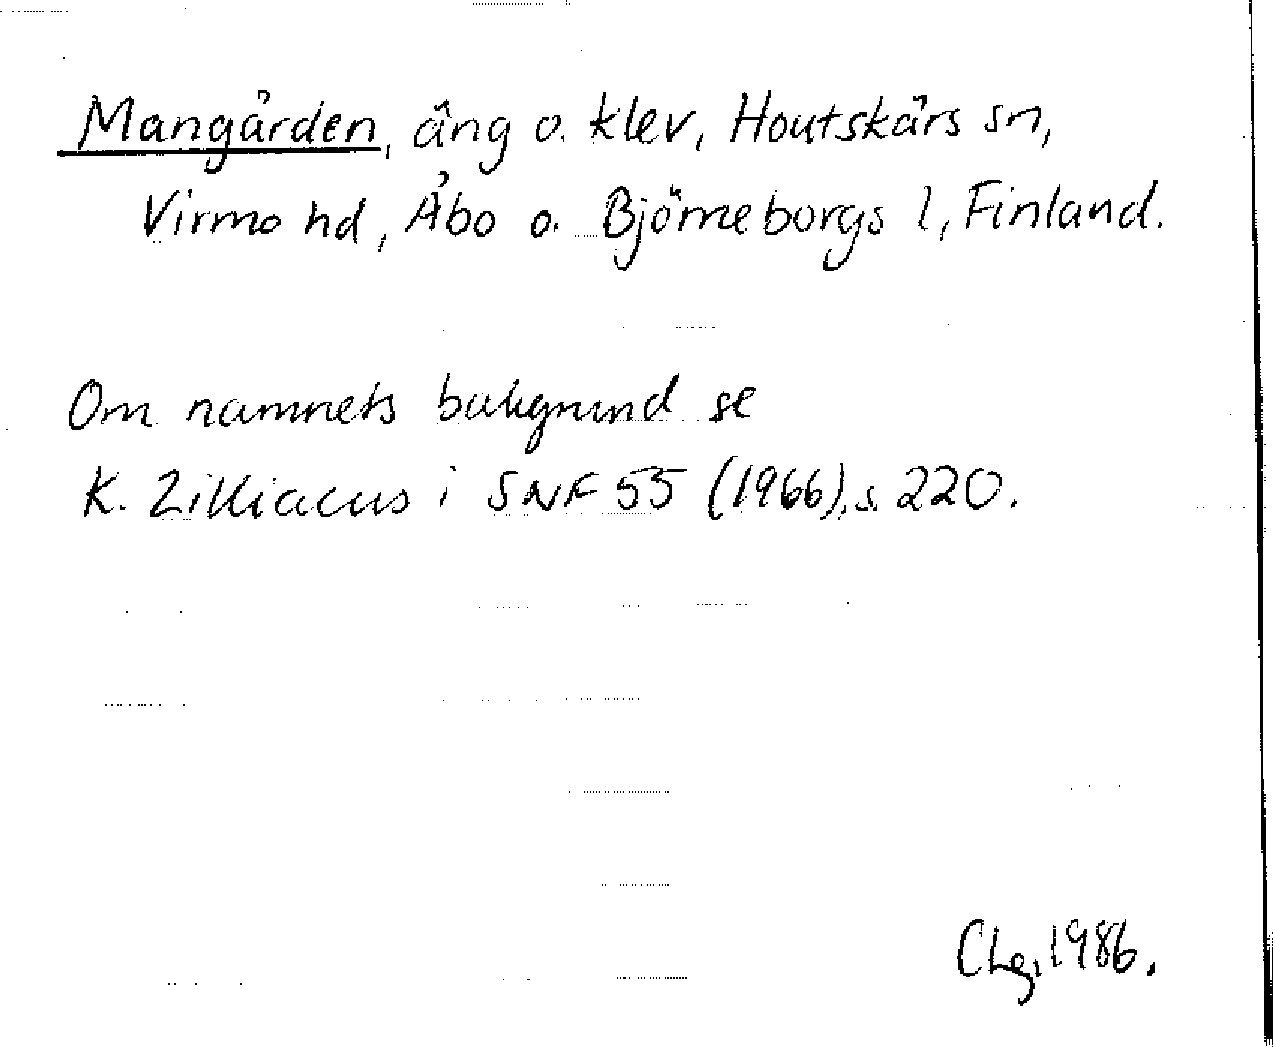 Mangården, äng o. klev, Houtskärs sn,
Virmo hd, Åbo o. Björneborgs l, Finland.
Om namnets bakgrund se
K. Zilliacus i SNF 55 (1966), s 220.
CLg, 1986.